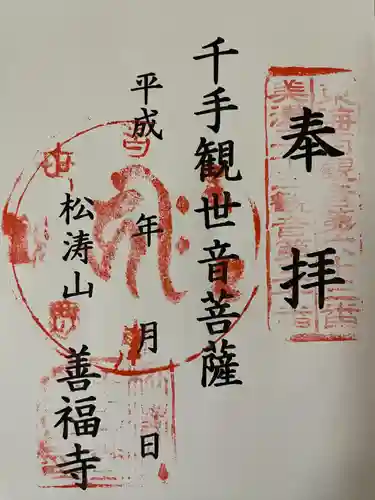 奉拝
千手観世音菩薩
平成 年 月 日
松涛山 善福寺